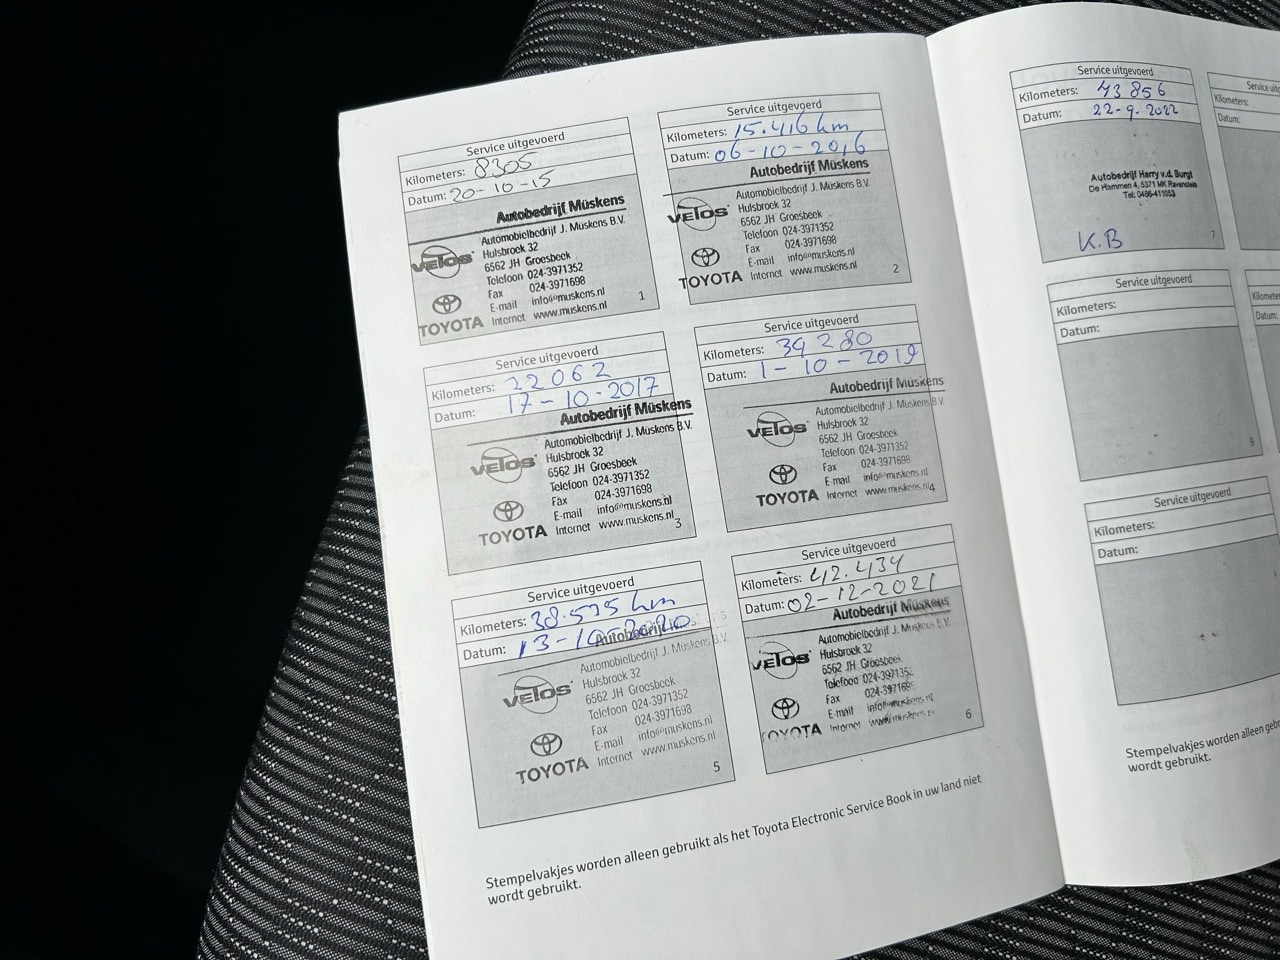 Service uitgevoerd
Kilometers: 8305
Datum: 20-10-15
Autobedrijf Müskens
Automobielbedrijf J. Muskens B.V.
Hulsbroek 32
6562 JH Groesbeek
Telefoon 024-3971352
Fax 024-3971698
E-mail info@muskens.nl
Internet www.muskens.nl
VELOS
TOYOTA
1
Service uitgevoerd
Kilometers: 15.416 km
Datum: 06-10-2016
Autobedrijf Müskens
Automobielbedrijf J. Muskens B.V.
Hulsbroek 32
6562 JH Groesbeek
Telefoon 024-3971352
Fax 024-3971698
E-mail info@muskens.nl
Internet www.muskens.nl
VELOS
TOYOTA
2
Service uitgevoerd
Kilometers: 22062
Datum: 17-10-2017
Autobedrijf Müskens
Automobielbedrijf J. Muskens B.V.
Hulsbroek 32
6562 JH Groesbeek
Telefoon 024-3971352
Fax 024-3971698
E-mail info@muskens.nl
Internet www.muskens.nl
VELOS
TOYOTA
3
Service uitgevoerd
Kilometers: 34280
Datum: 1-10-2019
Autobedrijf Müskens
Automobielbedrijf J. Muskens B.V.
Hulsbroek 32
6562 JH Groesbeek
Telefoon 024-3971352
Fax 024-3971698
E-mail info@muskens.nl
Internet www.muskens.nl
VELOS
TOYOTA
4
Service uitgevoerd
Kilometers: 38.595 km
Datum: 13-10-2020
Autobedrijf
Automobielbedrijf J. Muskens B.V.
Hulsbroek 32
6562 JH Groesbeek
Telefoon 024-3971352
Fax 024-3971698
E-mail info@muskens.nl
Internet www.muskens.nl
VELOS
TOYOTA
5
Service uitgevoerd
Kilometers: 42.434
Datum: 02-12-2021
Autobedrijf Müskens
Automobielbedrijf J. Muskens B.V.
Hulsbroek 32
6562 JH Groesbeek
Telefoon 024-3971352
Fax 024-3971698
E-mail info@muskens.nl
Internet www.muskens.nl
VELOS
TOYOTA
6
Stempelvakjes worden alleen gebruikt als het Toyota Electronic Service Book in uw land niet
wordt gebruikt.
Service uitgevoerd
Kilometers: 43856
Datum: 22-9-2022
Autobedrijf Harry v.d. Burgt
De Hammen 4, 5371 MK Ravenstein
Tel: 0486-411053
K.B
7
Service
Kilometers:
Datum:
Service uitgevoerd
Kilometers:
Datum:
9
Kilometers:
Datum:
Service uitgevoerd
Kilometers:
Datum:
Stempelvakjes worden alleen
wordt gebruikt.